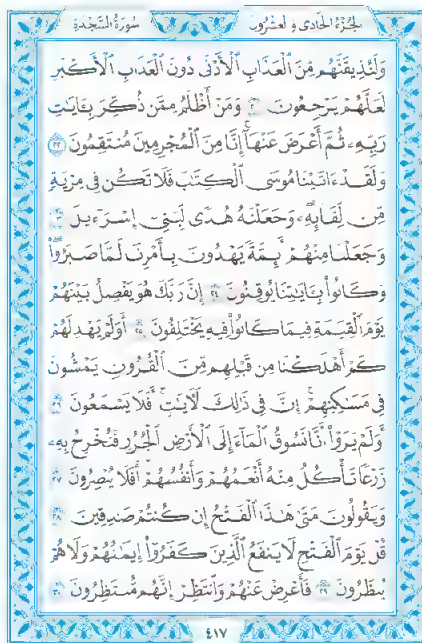 الجزء الحادى والعشرون
سورة السجدة
وَلَنُذِيقَنَّهُم مِّنَ ٱلْعَذَابِ ٱلْأَدْنَىٰ دُونَ ٱلْعَذَابِ ٱلْأَكْبَرِ
لَعَلَّهُمْ يَرْجِعُونَ ٢١ وَمَنْ أَظْلَمُ مِمَّن ذُكِّرَ بِـَٔايَٰتِ
رَبِّهِۦ ثُمَّ أَعْرَضَ عَنْهَآ ۚ إِنَّا مِنَ ٱلْمُجْرِمِينَ مُنتَقِمُونَ ٢٢
وَلَقَدْ ءَاتَيْنَا مُوسَى ٱلْكِتَٰبَ فَلَا تَكُن فِى مِرْيَةٍ
مِّن لِّقَآئِهِۦ ۖ وَجَعَلْنَٰهُ هُدًى لِّبَنِىٓ إِسْرَٰٓءِيلَ ٢٣
وَجَعَلْنَا مِنْهُمْ أَئِمَّةً يَهْدُونَ بِأَمْرِنَا لَمَّا صَبَرُوا۟ ۖ
وَكَانُوا۟ بِـَٔايَٰتِنَا يُوقِنُونَ ٢٤ إِنَّ رَبَّكَ هُوَ يَفْصِلُ بَيْنَهُمْ
يَوْمَ ٱلْقِيَٰمَةِ فِيمَا كَانُوا۟ فِيهِ يَخْتَلِفُونَ ٢٥ أَوَلَمْ يَهْدِ لَهُمْ
كَمْ أَهْلَكْنَا مِن قَبْلِهِم مِّنَ ٱلْقُرُونِ يَمْشُونَ
فِى مَسَٰكِنِهِمْ ۚ إِنَّ فِى ذَٰلِكَ لَـَٔايَٰتٍ ۖ أَفَلَا يَسْمَعُونَ ٢٦
أَوَلَمْ يَرَوْا۟ أَنَّا نَسُوقُ ٱلْمَآءَ إِلَى ٱلْأَرْضِ ٱلْجُرُزِ فَنُخْرِجُ بِهِۦ
زَرْعًا تَأْكُلُ مِنْهُ أَنْعَٰمُهُمْ وَأَنفُسُهُمْ ۖ أَفَلَا يُبْصِرُونَ ٢٧
وَيَقُولُونَ مَتَىٰ هَٰذَا ٱلْفَتْحُ إِن كُنتُمْ صَٰدِقِينَ ٢٨
قُلْ يَوْمَ ٱلْفَتْحِ لَا يَنفَعُ ٱلَّذِينَ كَفَرُوٓا۟ إِيمَٰنُهُمْ وَلَا هُمْ
يُنظَرُونَ ٢٩ فَأَعْرِضْ عَنْهُمْ وَٱنتَظِرْ إِنَّهُم مُّنتَظِرُونَ ٣٠
٤١٧